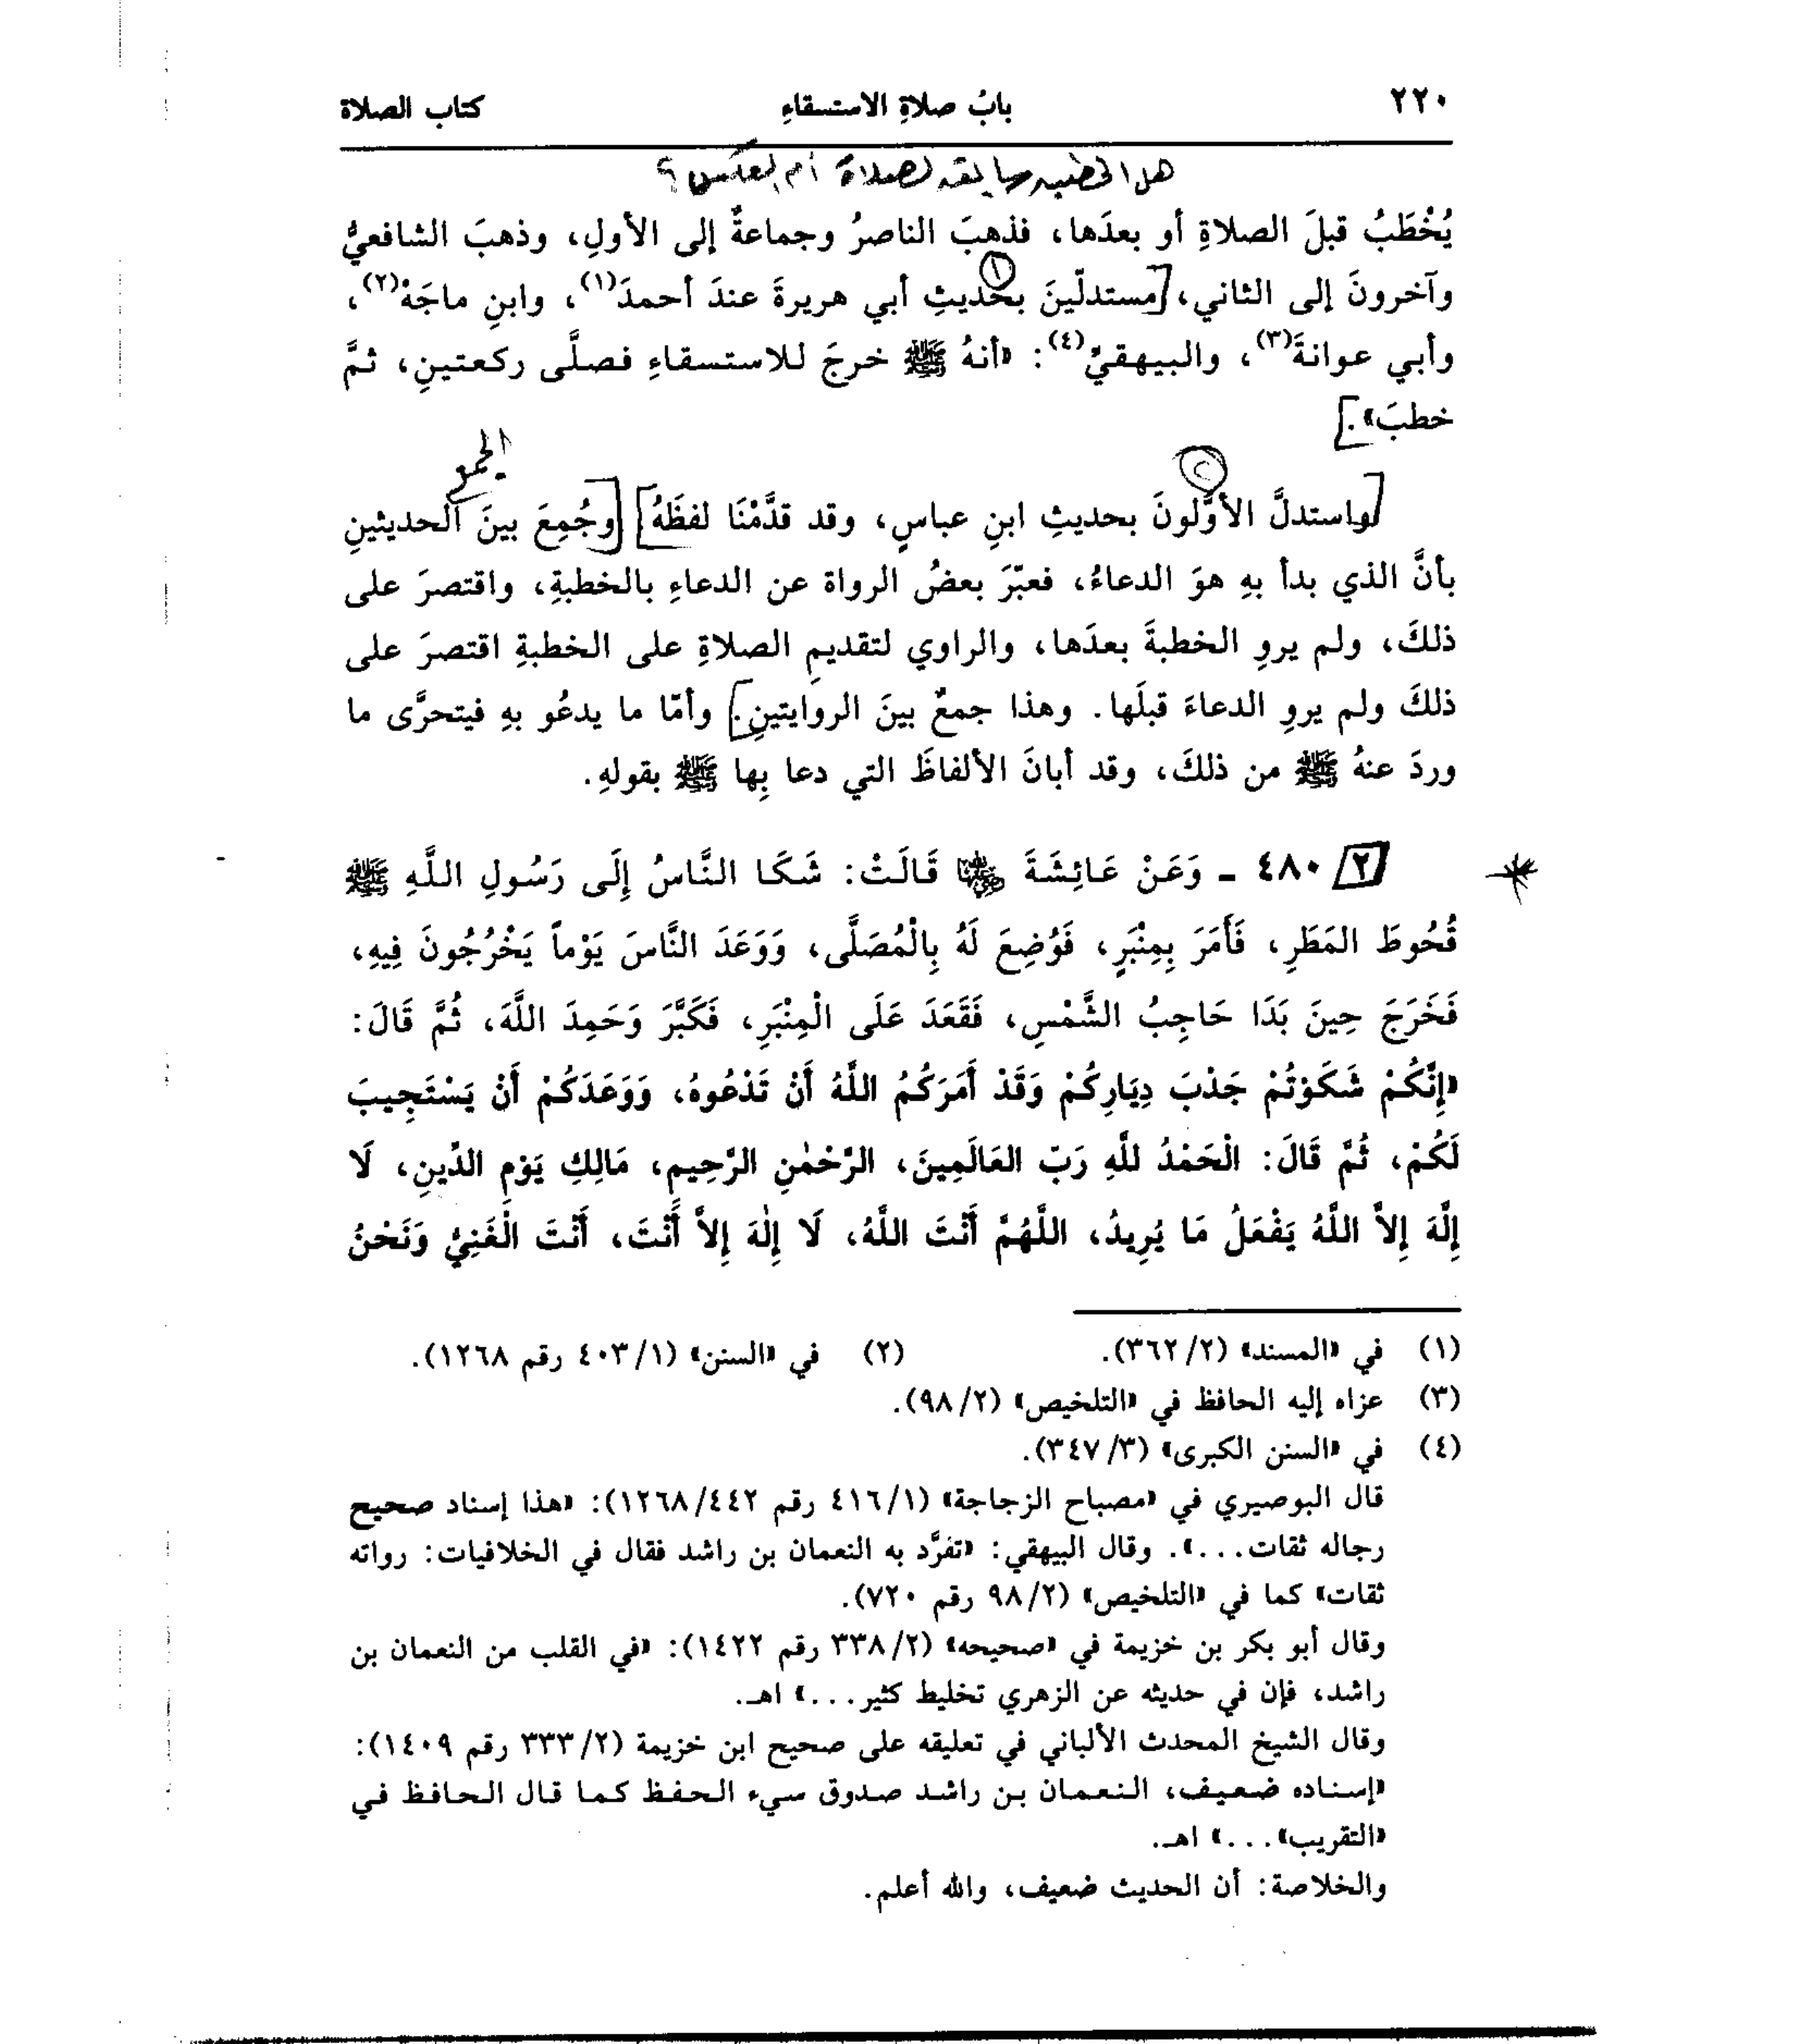 ٢٢٠ بابُ صلاةِ الاستسقاءِ كتاب الصلاة
هل الخطبة سابقة لصلاة أم العكس ؟
يُخْطَبُ قبلَ الصلاةِ أو بعدَها، فذهبَ الناصرُ وجماعةٌ إلى الأولِ، وذهبَ الشافعيُّ
وآخرونَ إلى الثاني، [مستدلّينَ بحديثِ أبي هريرةَ عندَ أحمدَ(١)، وابنِ ماجَهْ(٢)،
١
وأبي عوانةَ(٣)، والبيهقيِّ(٤): «أنهُ ﷺ خرجَ للاستسقاءِ فصلَّى ركعتينِ، ثمَّ
خطبَ».]
الجمع
٢
[واستدلَّ الأوَّلونَ بحديثِ ابنِ عباسٍ، وقد قدَّمْنَا لفظَهُ] [وجُمِعَ بينَ الحديثينِ
بأنَّ الذي بدأ بهِ هوَ الدعاءُ، فعبّرَ بعضُ الرواة عن الدعاءِ بالخطبةِ، واقتصرَ على
ذلكَ، ولم يروِ الخطبةَ بعدَها، والراوي لتقديمِ الصلاةِ على الخطبةِ اقتصرَ على
ذلكَ ولم يروِ الدعاءَ قبلَها. وهذا جمعٌ بينَ الروايتينِ.] وأمّا ما يدعُو بهِ فيتحرَّى ما
وردَ عنهُ ﷺ من ذلكَ، وقد أبانَ الألفاظَ التي دعا بِها ﷺ بقولهِ.
٢/ ٤٨٠ - وَعَنْ عَائِشَةَ رضي الله عنها قَالَتْ: شَكَا النَّاسُ إِلَى رَسُولِ اللَّهِ ﷺ
قُحُوطَ المَطَرِ، فَأَمَرَ بِمِنْبَرٍ، فَوُضِعَ لَهُ بِالْمُصَلَّى، وَوَعَدَ النَّاسَ يَوْماً يَخْرُجُونَ فِيهِ،
فَخَرَجَ حِينَ بَدَا حَاجِبُ الشَّمْسِ، فَقَعَدَ عَلَى الْمِنْبَرِ، فَكَبَّرَ وَحَمِدَ اللَّهَ، ثُمَّ قَالَ:
«إِنَّكُمْ شَكَوْتُمْ جَدْبَ دِيَارِكُمْ وَقَدْ أَمَرَكُمُ اللَّهُ أَنْ تَدْعُوهُ، وَوَعَدَكُمْ أَنْ يَسْتَجِيبَ
لَكُمْ، ثُمَّ قَالَ: الْحَمْدُ للَّهِ رَبّ العَالَمِينَ، الرَّحْمٰنِ الرَّحِيمِ، مَالِكِ يَوْمِ الدِّينِ، لَا
إِلَّهَ إِلاَّ اللَّهُ يَفْعَلُ مَا يُرِيدُ، اللَّهُمَّ أَنْتَ اللَّهُ، لَا إِلٰهَ إِلاَّ أَنْتَ، أَنْتَ الْغَنِيُّ وَنَحْنُ
(١) في «المسند» (٢/ ٣٦٢). (٢) في «السنن» (١/ ٤٠٣ رقم ١٢٦٨).
(٣) عزاه إليه الحافظ في «التلخيص» (٢/ ٩٨).
(٤) في «السنن الكبرى» (٣/ ٣٤٧).
قال البوصيري في «مصباح الزجاجة» (١/ ٤١٦ رقم ٤٤٢/ ١٢٦٨): «هذا إسناد صحيح
رجاله ثقات...». وقال البيهقي: «تفرَّد به النعمان بن راشد فقال في الخلافيات: رواته
ثقات» كما في «التلخيص» (٢/ ٩٨ رقم ٧٢٠).
وقال أبو بكر بن خزيمة في «صحيحه» (٢/ ٣٣٨ رقم ١٤٢٢): «في القلب من النعمان بن
راشد، فإن في حديثه عن الزهري تخليط كثير...» اهـ.
وقال الشيخ المحدث الألباني في تعليقه على صحيح ابن خزيمة (٢/ ٣٣٣ رقم ١٤٠٩):
«إسناده ضعيف، النعمان بن راشد صدوق سيء الحفظ كما قال الحافظ في
«التقريب»...» اهـ.
والخلاصة: أن الحديث ضعيف، والله أعلم.